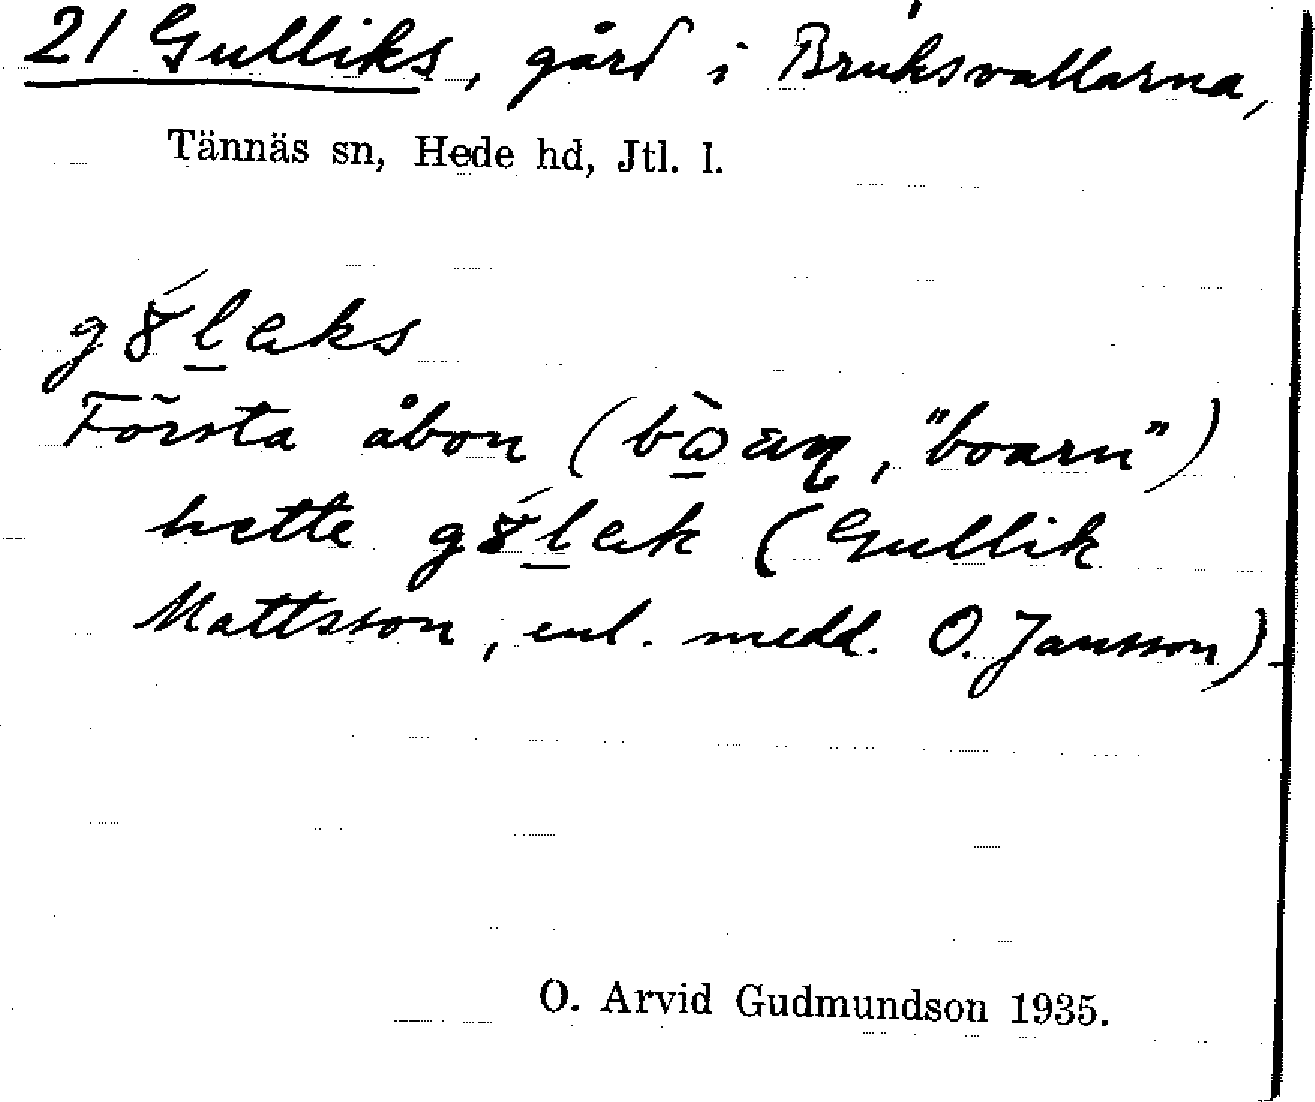 21 Gulliks, gård i Bruksvallarna,
Tännäs sn, Hede hd, Jtl. l.
Första åbon ( , "boarn")
hette (Gullik
Mattsson, enl. medd. O. Jansson)
O. Arvid Gudmundson 1935.